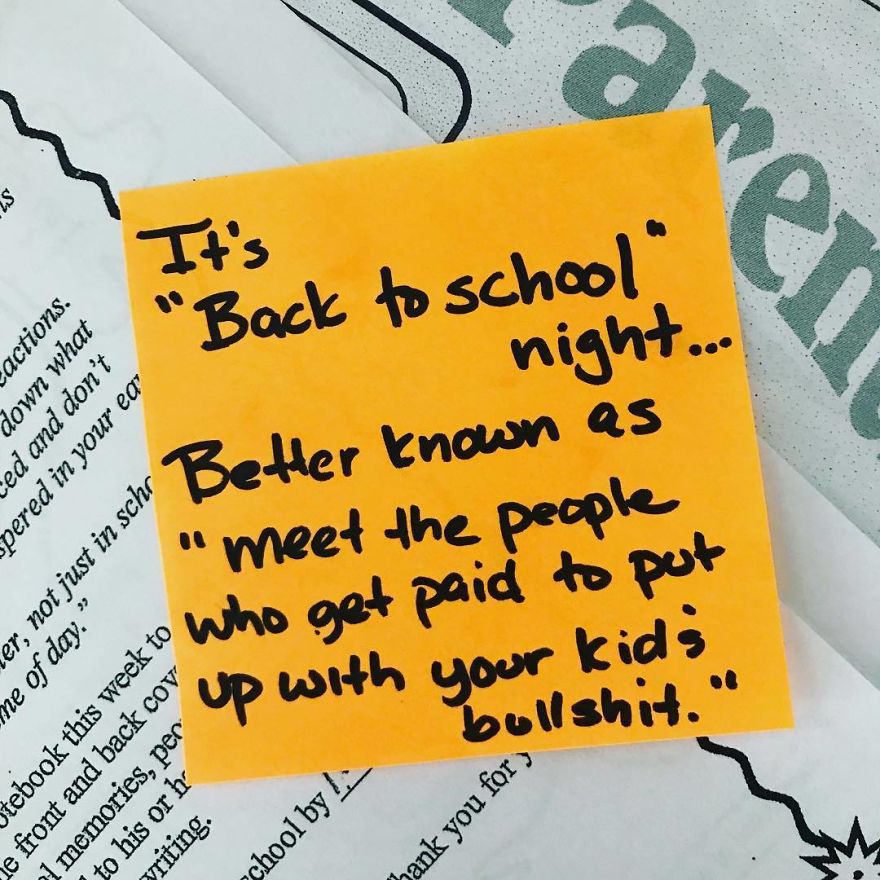 It's
"Back to school"
night...
Better known as
"meet the people
who get paid to put
up with your kid's
bullshit."
Paren
eactions.
down what
ced and don't
spered in your ea
er, not just in scho
me of day."
otebook this week to
e front and back cov
l memories, peo
to his or h
writing.
chool by
hank you for